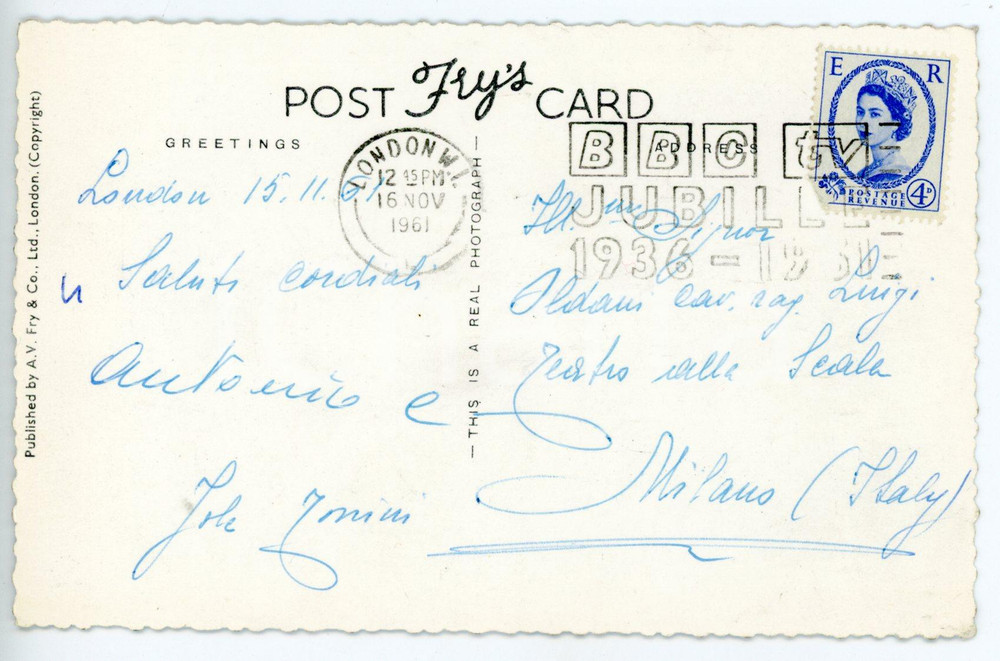 POST Fry's CARD
GREETINGS
ADDRESS
E R
POSTAGE REVENUE 4D
LONDON W.1.
12 15 PM
16 NOV
1961
BBC tv
JUBILEE
1936-1961
London 15.11.61
Saluti cordiali
Antonio e
Jole Tonini
Ill.mo Signor
Oldani Cav. rag. Luigi
Teatro alla Scala
Milano (Italy)
THIS IS A REAL PHOTOGRAPH
Published by A.V. Fry & Co., Ltd., London. (Copyright)